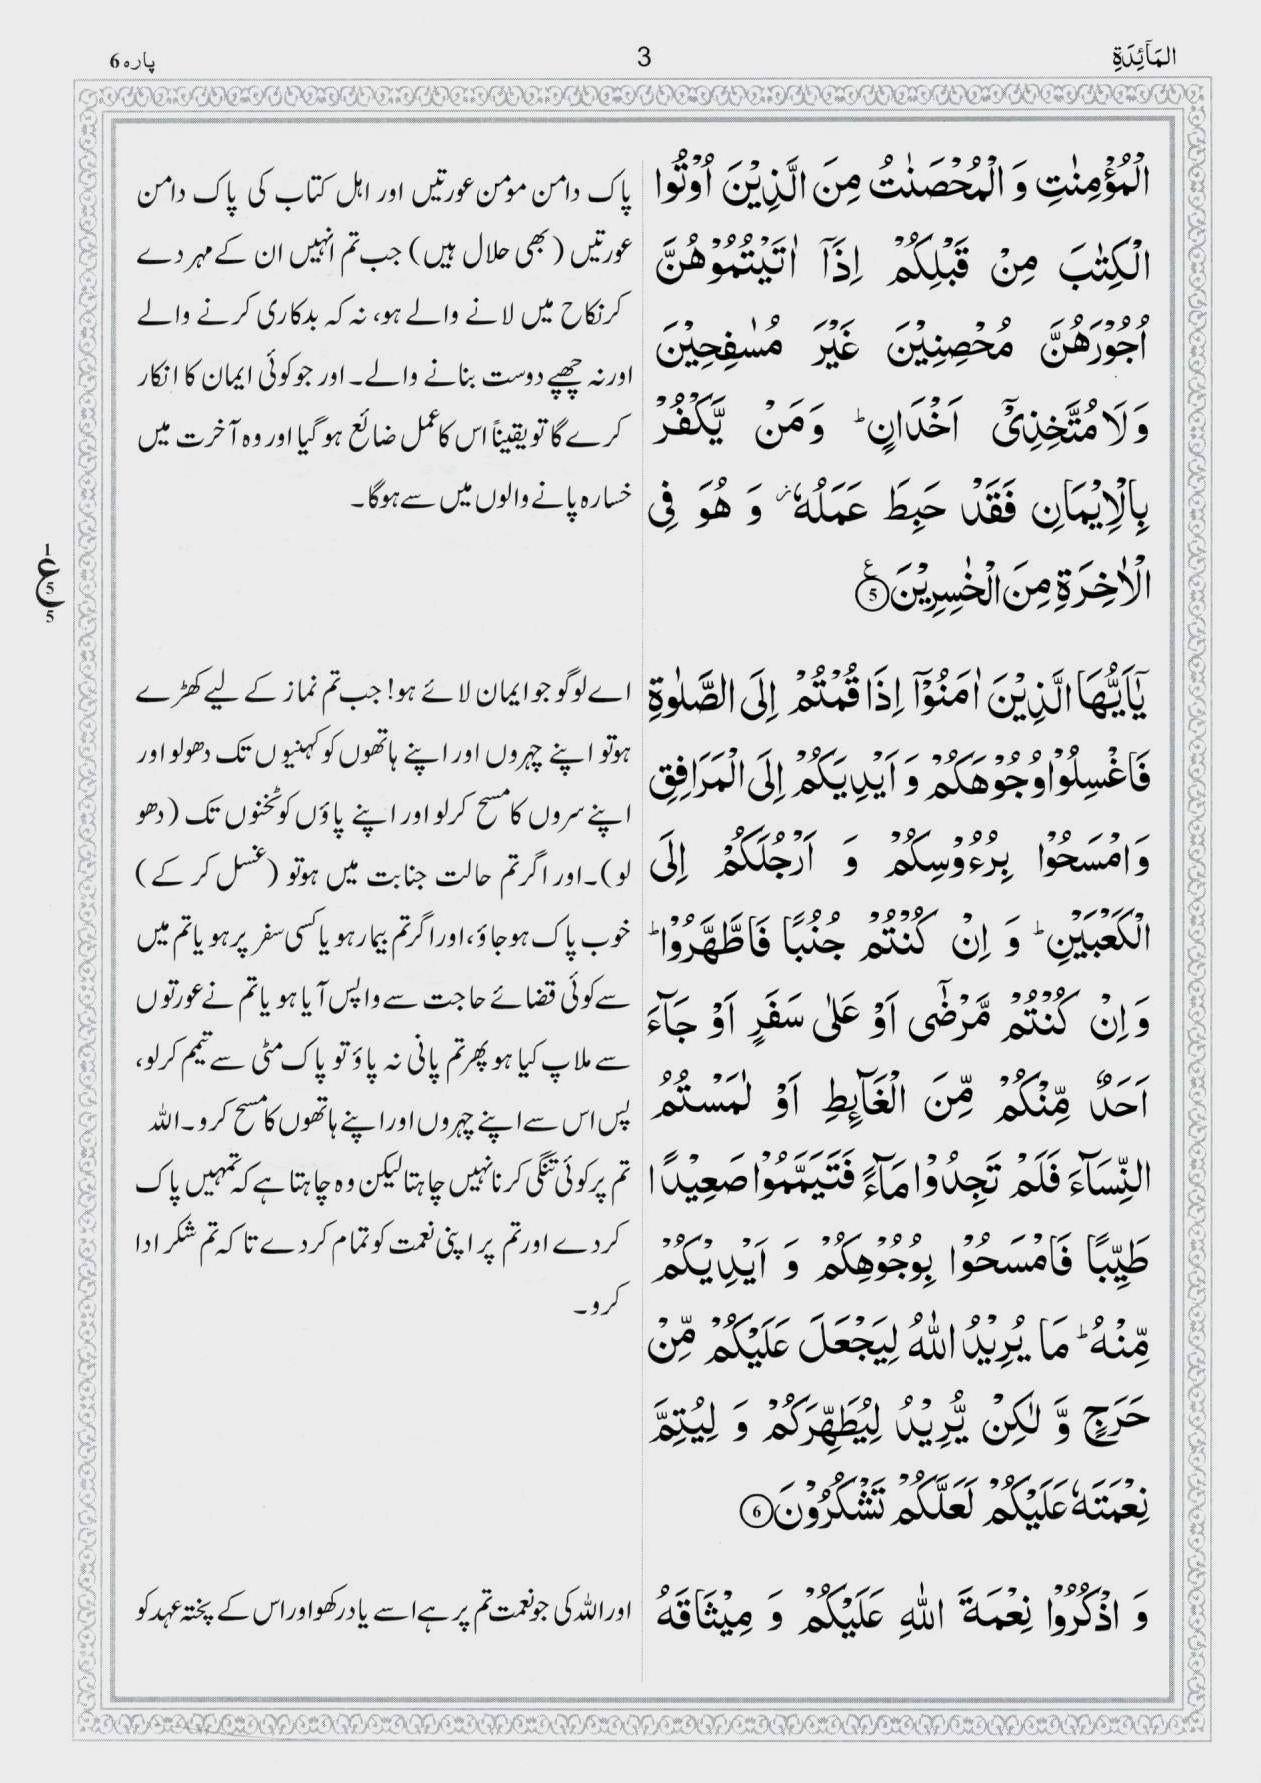 المَآئِدَةِ
3
پارہ 6
الْمُؤْمِنٰتِ وَ الْمُحْصَنٰتُ مِنَ الَّذِيْنَ اُوْتُوا
الْكِتٰبَ مِنْ قَبْلِكُمْ اِذَاۤ اٰتَيْتُمُوْهُنَّ
اُجُوْرَهُنَّ مُحْصِنِيْنَ غَيْرَ مُسٰفِحِيْنَ
وَلَا مُتَّخِذِيْۤ اَخْدَانٍ ؕ وَمَنْ يَّكْفُرْ
بِالْاِيْمَانِ فَقَدْ حَبِطَ عَمَلُهٗ ؗ وَ هُوَ فِي
الْاٰخِرَةِ مِنَ الْخٰسِرِيْنَ ۧ 5
پاک دامن مومن عورتیں اور اہل کتاب کی پاک دامن
عورتیں (بھی حلال ہیں) جب تم انہیں ان کے مہر دے
کر نکاح میں لانے والے ہو، نہ کہ بدکاری کرنے والے
اور نہ چھپے دوست بنانے والے۔ اور جو کوئی ایمان کا انکار
کرے گا تو یقیناً اس کا عمل ضائع ہو گیا اور وہ آخرت میں
خسارہ پانے والوں میں سے ہوگا۔
1
ع
5
5
يٰۤاَيُّهَا الَّذِيْنَ اٰمَنُوْۤا اِذَا قُمْتُمْ اِلَى الصَّلٰوةِ
فَاغْسِلُوْا وُجُوْهَكُمْ وَ اَيْدِيَكُمْ اِلَى الْمَرَافِقِ
وَ امْسَحُوْا بِرُءُوْسِكُمْ وَ اَرْجُلَكُمْ اِلَى
الْكَعْبَيْنِ ؕ وَ اِنْ كُنْتُمْ جُنُبًا فَاطَّهَّرُوْا ؕ
وَ اِنْ كُنْتُمْ مَّرْضٰۤى اَوْ عَلٰى سَفَرٍ اَوْ جَآءَ
اَحَدٌ مِّنْكُمْ مِّنَ الْغَآىِٕطِ اَوْ لٰمَسْتُمُ
النِّسَآءَ فَلَمْ تَجِدُوْا مَآءً فَتَيَمَّمُوْا صَعِيْدًا
طَيِّبًا فَامْسَحُوْا بِوُجُوْهِكُمْ وَ اَيْدِيْكُمْ
مِّنْهُ ؕ مَا يُرِيْدُ اللّٰهُ لِيَجْعَلَ عَلَيْكُمْ مِّنْ
حَرَجٍ وَّ لٰكِنْ يُّرِيْدُ لِيُطَهِّرَكُمْ وَ لِيُتِمَّ
نِعْمَتَهٗ عَلَيْكُمْ لَعَلَّكُمْ تَشْكُرُوْنَ 6
اے لوگو جو ایمان لائے ہو! جب تم نماز کے لیے کھڑے
ہو تو اپنے چہروں اور اپنے ہاتھوں کو کہنیوں تک دھولو اور
اپنے سروں کا مسح کرلو اور اپنے پاؤں کو ٹخنوں تک (دھو
لو)۔ اور اگر تم حالت جنابت میں ہو تو (غسل کر کے)
خوب پاک ہو جاؤ، اور اگر تم بیمار ہو یا کسی سفر پر ہو یا تم میں
سے کوئی قضائے حاجت سے واپس آیا ہو یا تم نے عورتوں
سے ملاپ کیا ہو پھر تم پانی نہ پاؤ تو پاک مٹی سے تیمم کرلو،
پس اس سے اپنے چہروں اور اپنے ہاتھوں کا مسح کرو۔ اللہ
تم پر کوئی تنگی کرنا نہیں چاہتا لیکن وہ چاہتا ہے کہ تمہیں پاک
کر دے اور تم پر اپنی نعمت کو تمام کر دے تا کہ تم شکر ادا
کرو۔
وَ اذْكُرُوْا نِعْمَةَ اللّٰهِ عَلَيْكُمْ وَ مِيْثَاقَهُ
اور اللہ کی جو نعمت تم پر ہے اسے یاد رکھو اور اس کے پختہ عہد کو